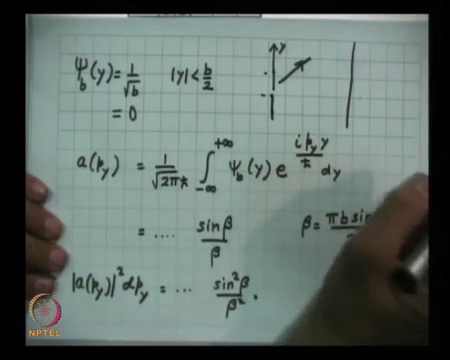 Ψ_b(y) = 1/√b |y| < b/2
= 0
y
a(p_y) = 1/√(2πħ) ∫_{-∞}^{+∞} Ψ_b(y) e^{i p_y y/ħ} dy
= .... sinβ/β
β = πb sin
|a(p_y)|² dp_y = ... sin²β/β² .
NPTEL